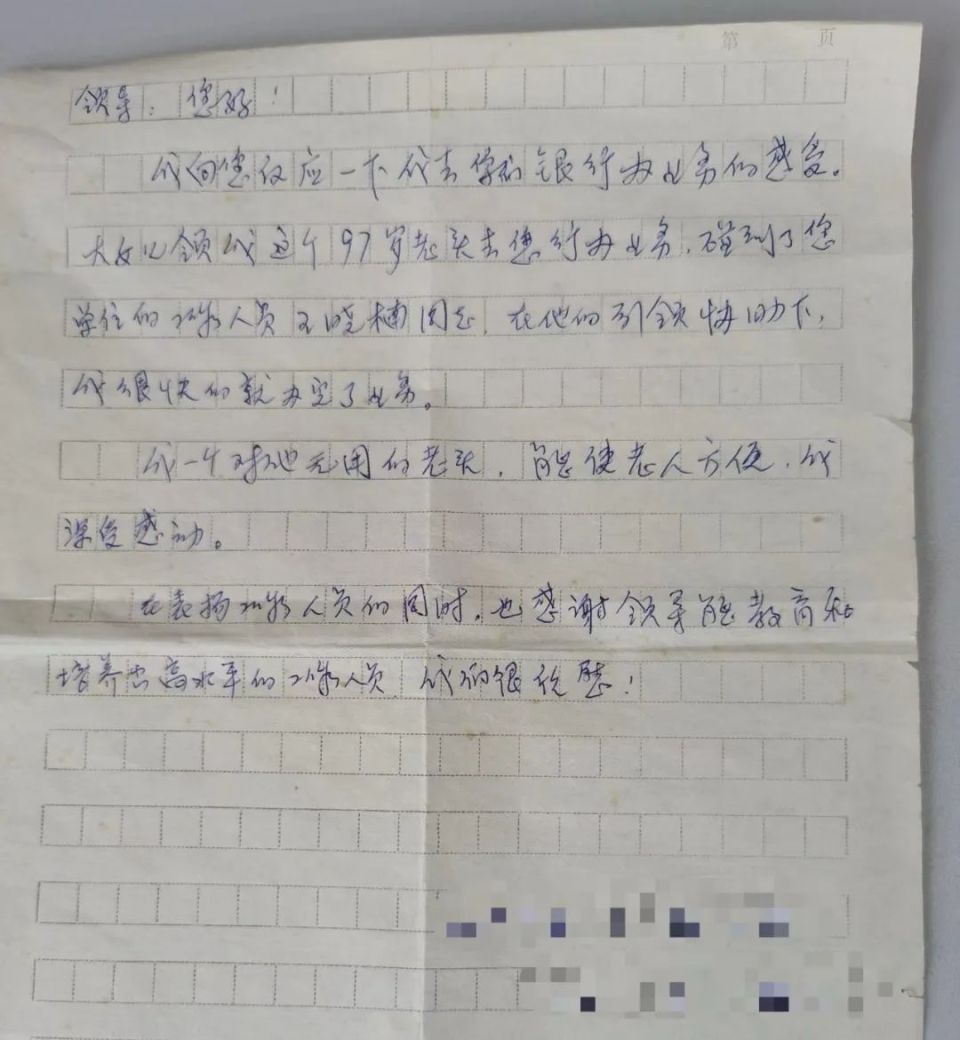 第 页
领导:您好!
我向您反应一下我去你们银行办业务的感受。
大女儿领我这个97岁老头去您行办业务,碰到了您
单位的工作人员王晓楠同志,在他的引领协助下,
我很快的就办完了业务。
我一个对他无用的老头,能使老人方便,我
深受感动。
在表扬工作人员的同时,也感谢领导能教育和
培养出高水平的工作人员,我们很欣慰!